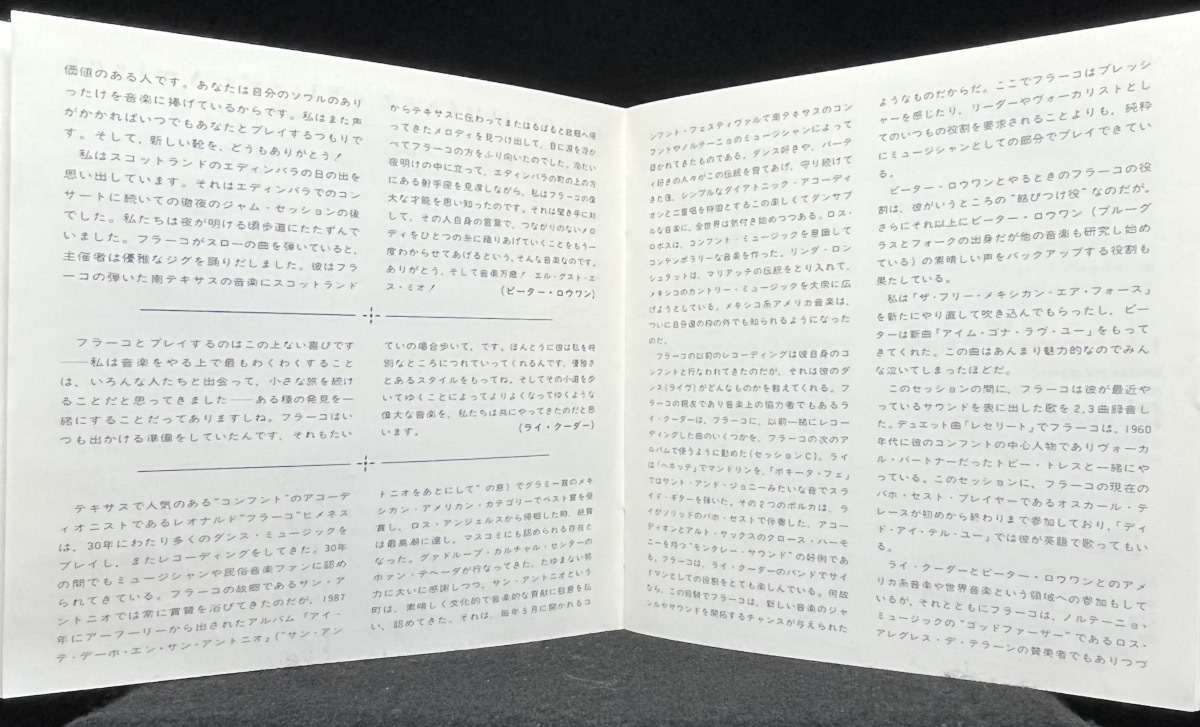 価値のある人です。あなたは自分のソウルのあり
ったけを音楽に捧げているからです。私はまた声
がかかればいつでもあなたとプレイするつもりで
す。そして、新しい靴を、どうもありがとう！
私はスコットランドのエディンバラの日の出を
思い出しています。それはエディンバラでのコン
サートに続いての徹夜のジャム・セッションの後
でした。私たちは夜が明ける頃歩道にたたずんで
いました。フラーコがスローの曲を弾いていると、
主催者は優雅なジグを踊りだしました。彼はフラ
ーコの弾いた南テキサスの音楽にスコットランド
からテキサスに伝わってまたはるばると故郷へ帰
ってきたメロディを見つけ出して、目に涙を浮か
べてフラーコの方をふり向いたのでした。冷たい
夜明けの中に立って、エディンバラの町の上の方
にある射手座を見渡しながら、私はフラーコの偉
大な才能を思い知ったのです。それは聞き手に対
して、その人自身の言葉で、つながりのないメロ
ディをひとつの糸に織りあげていくことをもう一
度わからせてあげるという、そんな音楽なのです。
ありがとう、そして音楽万歳！ エル・グスト・エ
ス・ミオ！
(ピーター・ロウワン)
フラーコとプレイするのはこの上ない喜びです
──私は音楽をやる上で最もわくわくすること
は、いろんな人たちと出会って、小さな旅を続け
ることだと思ってきました──ある種の発見を一
緒にすることだってありますしね。フラーコはい
つも出かける準備をしていたんです、それもたい
ていの場合歩いて、です。ほんとうに彼は私を特
別なところにつれていってくれるんです、優雅さ
とあるスタイルをもってね。そしてその小道を歩
いてゆくことによってよりよくなってゆくような
偉大な音楽を、私たちは共にやってきたのだと思
います。
(ライ・クーダー)
テキサスで人気のある“コンフント”のアコーデ
ィオニストであるレオナルド“フラーコ”ヒメネス
は、30年にわたり多くのダンス・ミュージックを
プレイし、またレコーディングをしてきた。30年
の間でもミュージシャンや民俗音楽ファンに認め
られてきている。フラーコの故郷であるサン・ア
ントニオでは常に賞賛を浴びてきたのだが、1987
年にアーフーリーから出されたアルバム「アイ・
テ・デーホ・エン・サン・アントニオ」(“サン・アン
トニオをあとにして”の意)でグラミー賞のメキ
シカン・アメリカン・カテゴリーでベスト賞を受
賞し、ロス・アンジェルスから帰郷した時、絶賛
は最高潮に達し、マスコミにも認められる存在と
なった。グァドループ・カルチャル・センターの
ホァン・テヘーダが行なってきた、たゆまない努
力に大いに感謝しつつ、サン・アントニオという
町は、素晴しく文化的で音楽的な貢献に敬意を払
い、認めてきた。それは、毎年5月に開かれるコ
ンフント・フェスティヴァルで南テキサスのコン
フントやノルテーニョのミュージシャンによって
築かれてきたものである。ダンス好きや、パーテ
ィ好きの人々がこの伝統を育てあげ、守り続けて
きた後、シンプルなダイアトニック・アコーディ
オンと二重唱を特徴とするこの楽しくてダンサブ
ルな音楽に、全世界は気付き始めつつある。ロス・
ロボスは、コンフント・ミュージックを意図して
コンテンポラリーな音楽を作った。リンダ・ロン
シュタットは、マリアッチの伝統をとり入れて、
メキシコのカントリー・ミュージックを大衆に広
げようとしている。メキシコ系アメリカ音楽は、
ついに自分達の枠の外でも知られるようになった
のだ。
フラーコの以前のレコーディングは彼自身のコ
ンフントと行なわれてきたのだが、それは彼のダ
ンス(ライヴ)がどんなものかを教えてくれる。フ
ラーコの親友であり音楽上の協力者でもあるラ
イ・クーダーは、フラーコに、以前一緒にレコー
ディングした曲のいくつかを、フラーコの次のア
ルバムで使うように勧めた(セッションC)。ライ
は「ヘネッテ」でマンドリンを、「ポキータ・フェ」
ではサント・アンド・ジョニーみたいな音でスラ
イド・ギターを弾いた。その2つのポルカは、ラ
イがソリッドのバホ・セストで伴奏した、アコー
ディオンとアルト・サックスのクロース・ハーモ
ニーを持つ“モンタレー・サウンド”の好例であ
る。フラーコは、ライ・クーダーのバンドでサイ
ドマンとしての役割をとても楽しんでいる。何故
なら、この経験でフラーコは、新しい音楽のジャ
ンルやサウンドを開拓するチャンスが与えられた
ようなものだからだ。ここでフラーコはプレッシ
ャーを感じたり、リーダーやヴォーカリストとし
てのいつもの役割を要求されることよりも、純粋
にミュージシャンとしての部分でプレイできてい
る。
ピーター・ロウワンとやるときのフラーコの役
割は、彼がいうところの“結びつけ役”なのだが。
さらにそれ以上にピーター・ロウワン(ブルーグ
ラスとフォークの出身だが他の音楽も研究し始め
ている)の素晴しい声をバックアップする役割も
果たしている。
私は「ザ・フリー・メキシカン・エア・フォース」
を新たにやり直して吹き込んでもらったし、ピー
ターは新曲「アイム・ゴナ・ラヴ・ユー」をもって
きてくれた。この曲はあんまり魅力的なのでみん
な泣いてしまったほどだ。
このセッションの間に、フラーコは彼が最近や
っているサウンドを表に出した歌を2,3曲録音し
た。デュエット曲「レセリート」でフラーコは、1960
年代に彼のコンフントの中心人物でありヴォーカ
ル・パートナーだったトビー・トレスと一緒にや
っている。このセッションに、フラーコの現在の
バホ・セスト・プレイヤーであるオスカール・テ
レースが初めから終わりまで参加しており、「ディ
ド・アイ・テル・ユー」では彼が英語で歌ってもい
る。
ライ・クーダーとピーター・ロウワンとのアメ
リカ系音楽や世界音楽という領域への参加もして
いるが、それとともにフラーコは、ノルテーニョ・
ミュージックの“ゴッドファーザー”であるロス・
アレグレス・デ・テラーンの賛美者でもありつづ